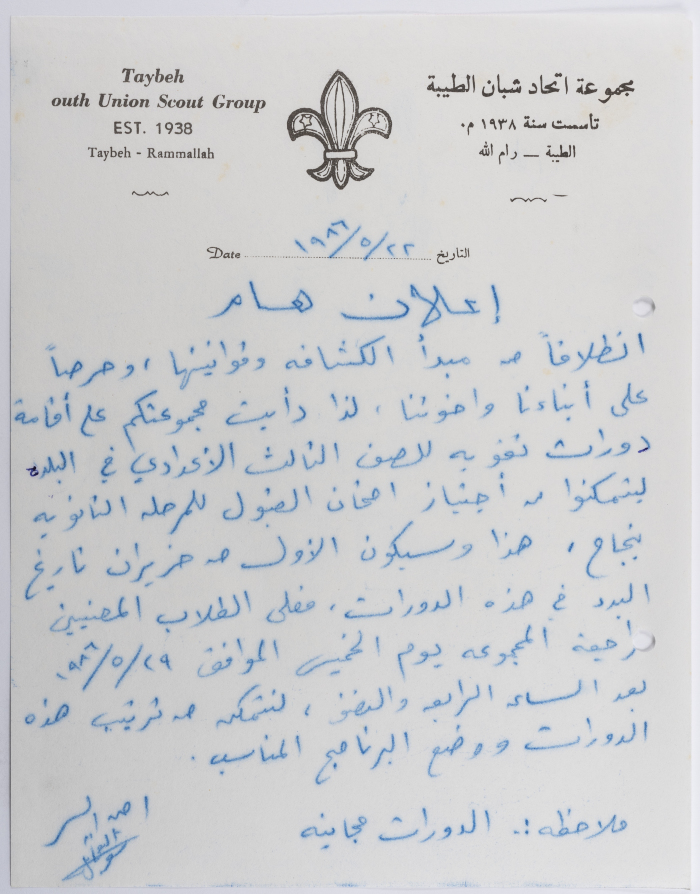 Taybeh
outh Union Scout Group
EST. 1938
Taybeh - Rammallah
مجموعة اتحاد شبان الطيبة
تأسست سنة ١٩٣٨ م.
الطيبة — رام الله
Date ١٩٨٦/٥/٢٢ التاريخ
إعلان هام
انطلاقاً من مبدأ الكشافه وقوانينها ، وحرصاً
على أبناءنا واخوتنا ، لذا دأبت مجموعتكم على أقامة
دورات تقويه للصف الثالث الأعدادي في البلده
ليتمكنوا من أجتياز امتحان القبول للمرحله الثانويه
بنجاح ، هذا وسيكون الأول من حزيران تاريخ
البدء في هذه الدورات ، فعلى الطلاب المعنيين
راجعة المجموعه يوم الخميس الموافق ١٩٨٦/٥/٢٩
بعد الساعه الرابعه والنصف ، لنتمكن من ترتيب هذه
الدورات ووضع البرنامج المناسب .
ملاحظه :. الدورات مجانيه
امين السر